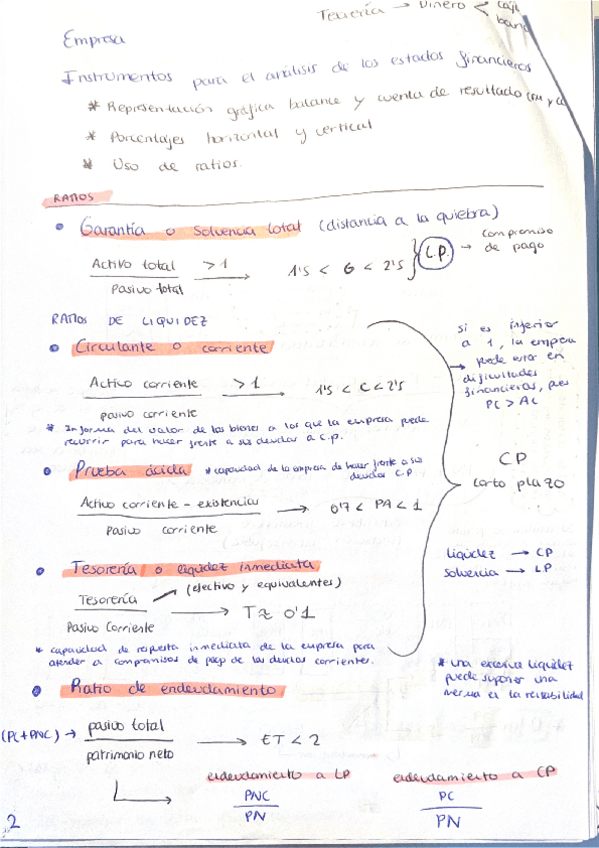 Tesorería → Dinero < caja
banco
Empresa
Instrumentos para el análisis de los estados financieros
* Representación gráfica balance y cuenta de resultado
* Porcentajes horizontal y vertical
* Uso de ratios.
RATIOS
• Garantía o solvencia total (distancia a la quiebra)
Activo total / Pasivo total >1 → 1'5 < G < 2'5 } L.P. → compromiso
de pago
RATIOS DE LIQUIDEZ
• Circulante o corriente
Activo corriente / pasivo corriente >1 → 1'5 < C < 2'5
* Informa del valor de los bienes a los que la empresa puede
recurrir para hacer frente a sus deudas a c.p.
si es inferior
a 1, la empresa
→ puede estar en
dificultades
financieras, pues
PC > AC
• Prueba ácida * capacidad de la empresa de hacer frente a sus
deudas C.P.
Activo corriente - existencias / Pasivo corriente → 0'7 < PA < 1
CP
corto plazo
• Tesorería o liquidez inmediata
(efectivo y equivalentes)
Tesorería / Pasivo Corriente → T ≈ 0'1
liquidez → CP
solvencia → LP
* capacidad de respuesta inmediata de la empresa para
atender a compromisos de pago de las deudas corrientes.
* una excesiva liquidez
puede suponer una
merma en la rentabilidad
• Ratio de endeudamiento
(PC+PNC) → pasivo total / patrimonio neto → ET < 2
endeudamiento a LP
PNC / PN
endeudamiento a CP
PC / PN
2